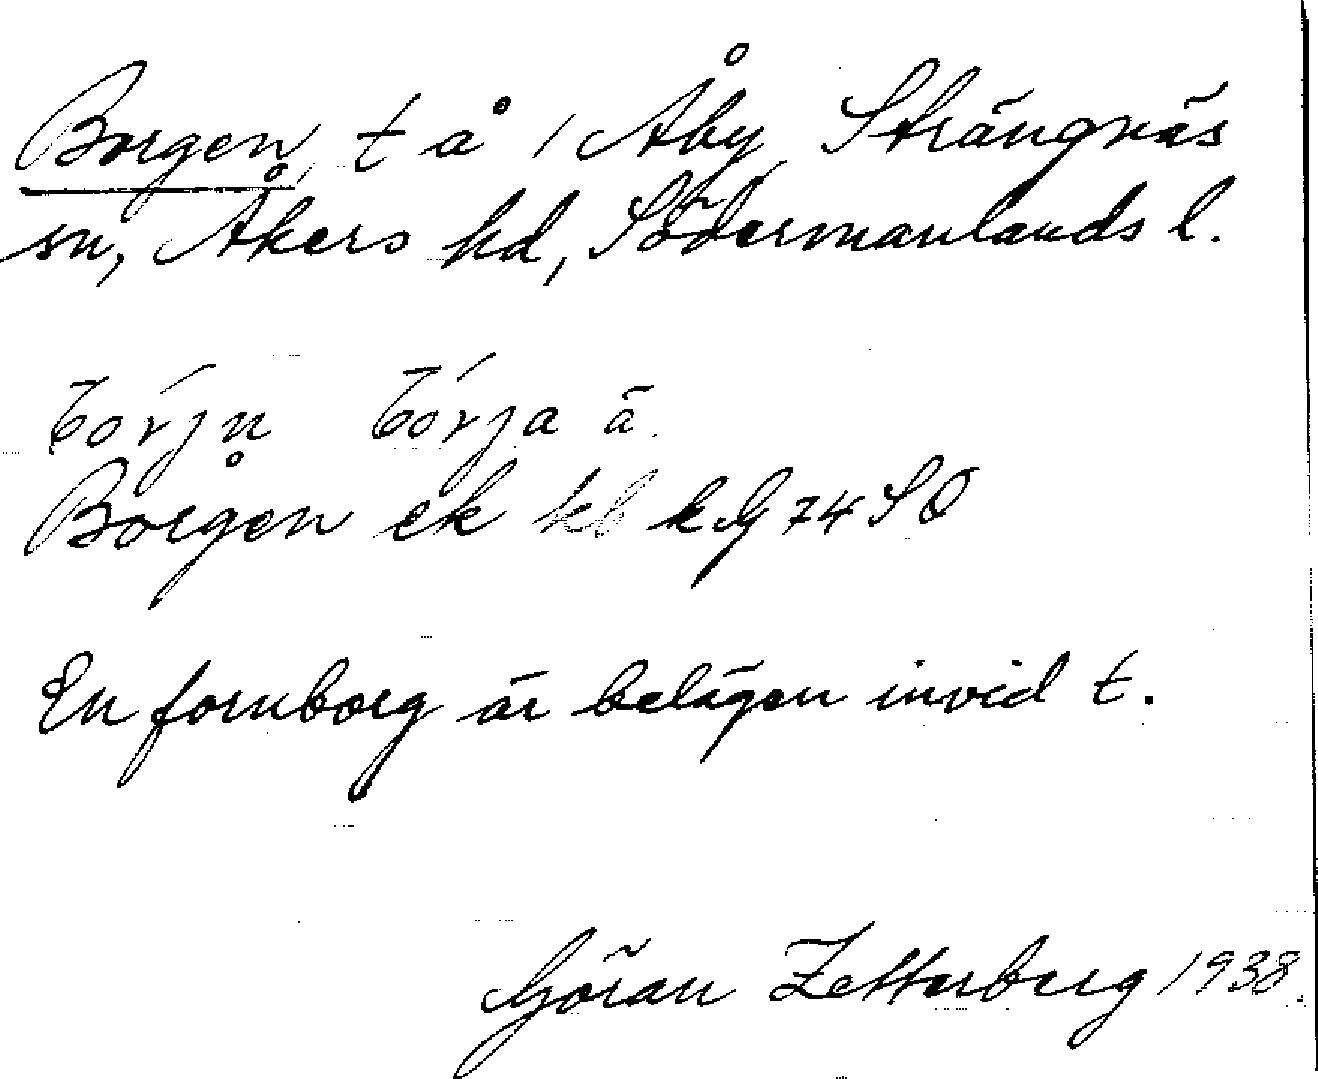 Borgen, t å 1 Åby, Strängnäs
sn, Åkers hd, Södermanlands l.
Bårgen ek kb k
En fornborg är belägen invid t.
Göran Zetterberg 1938.